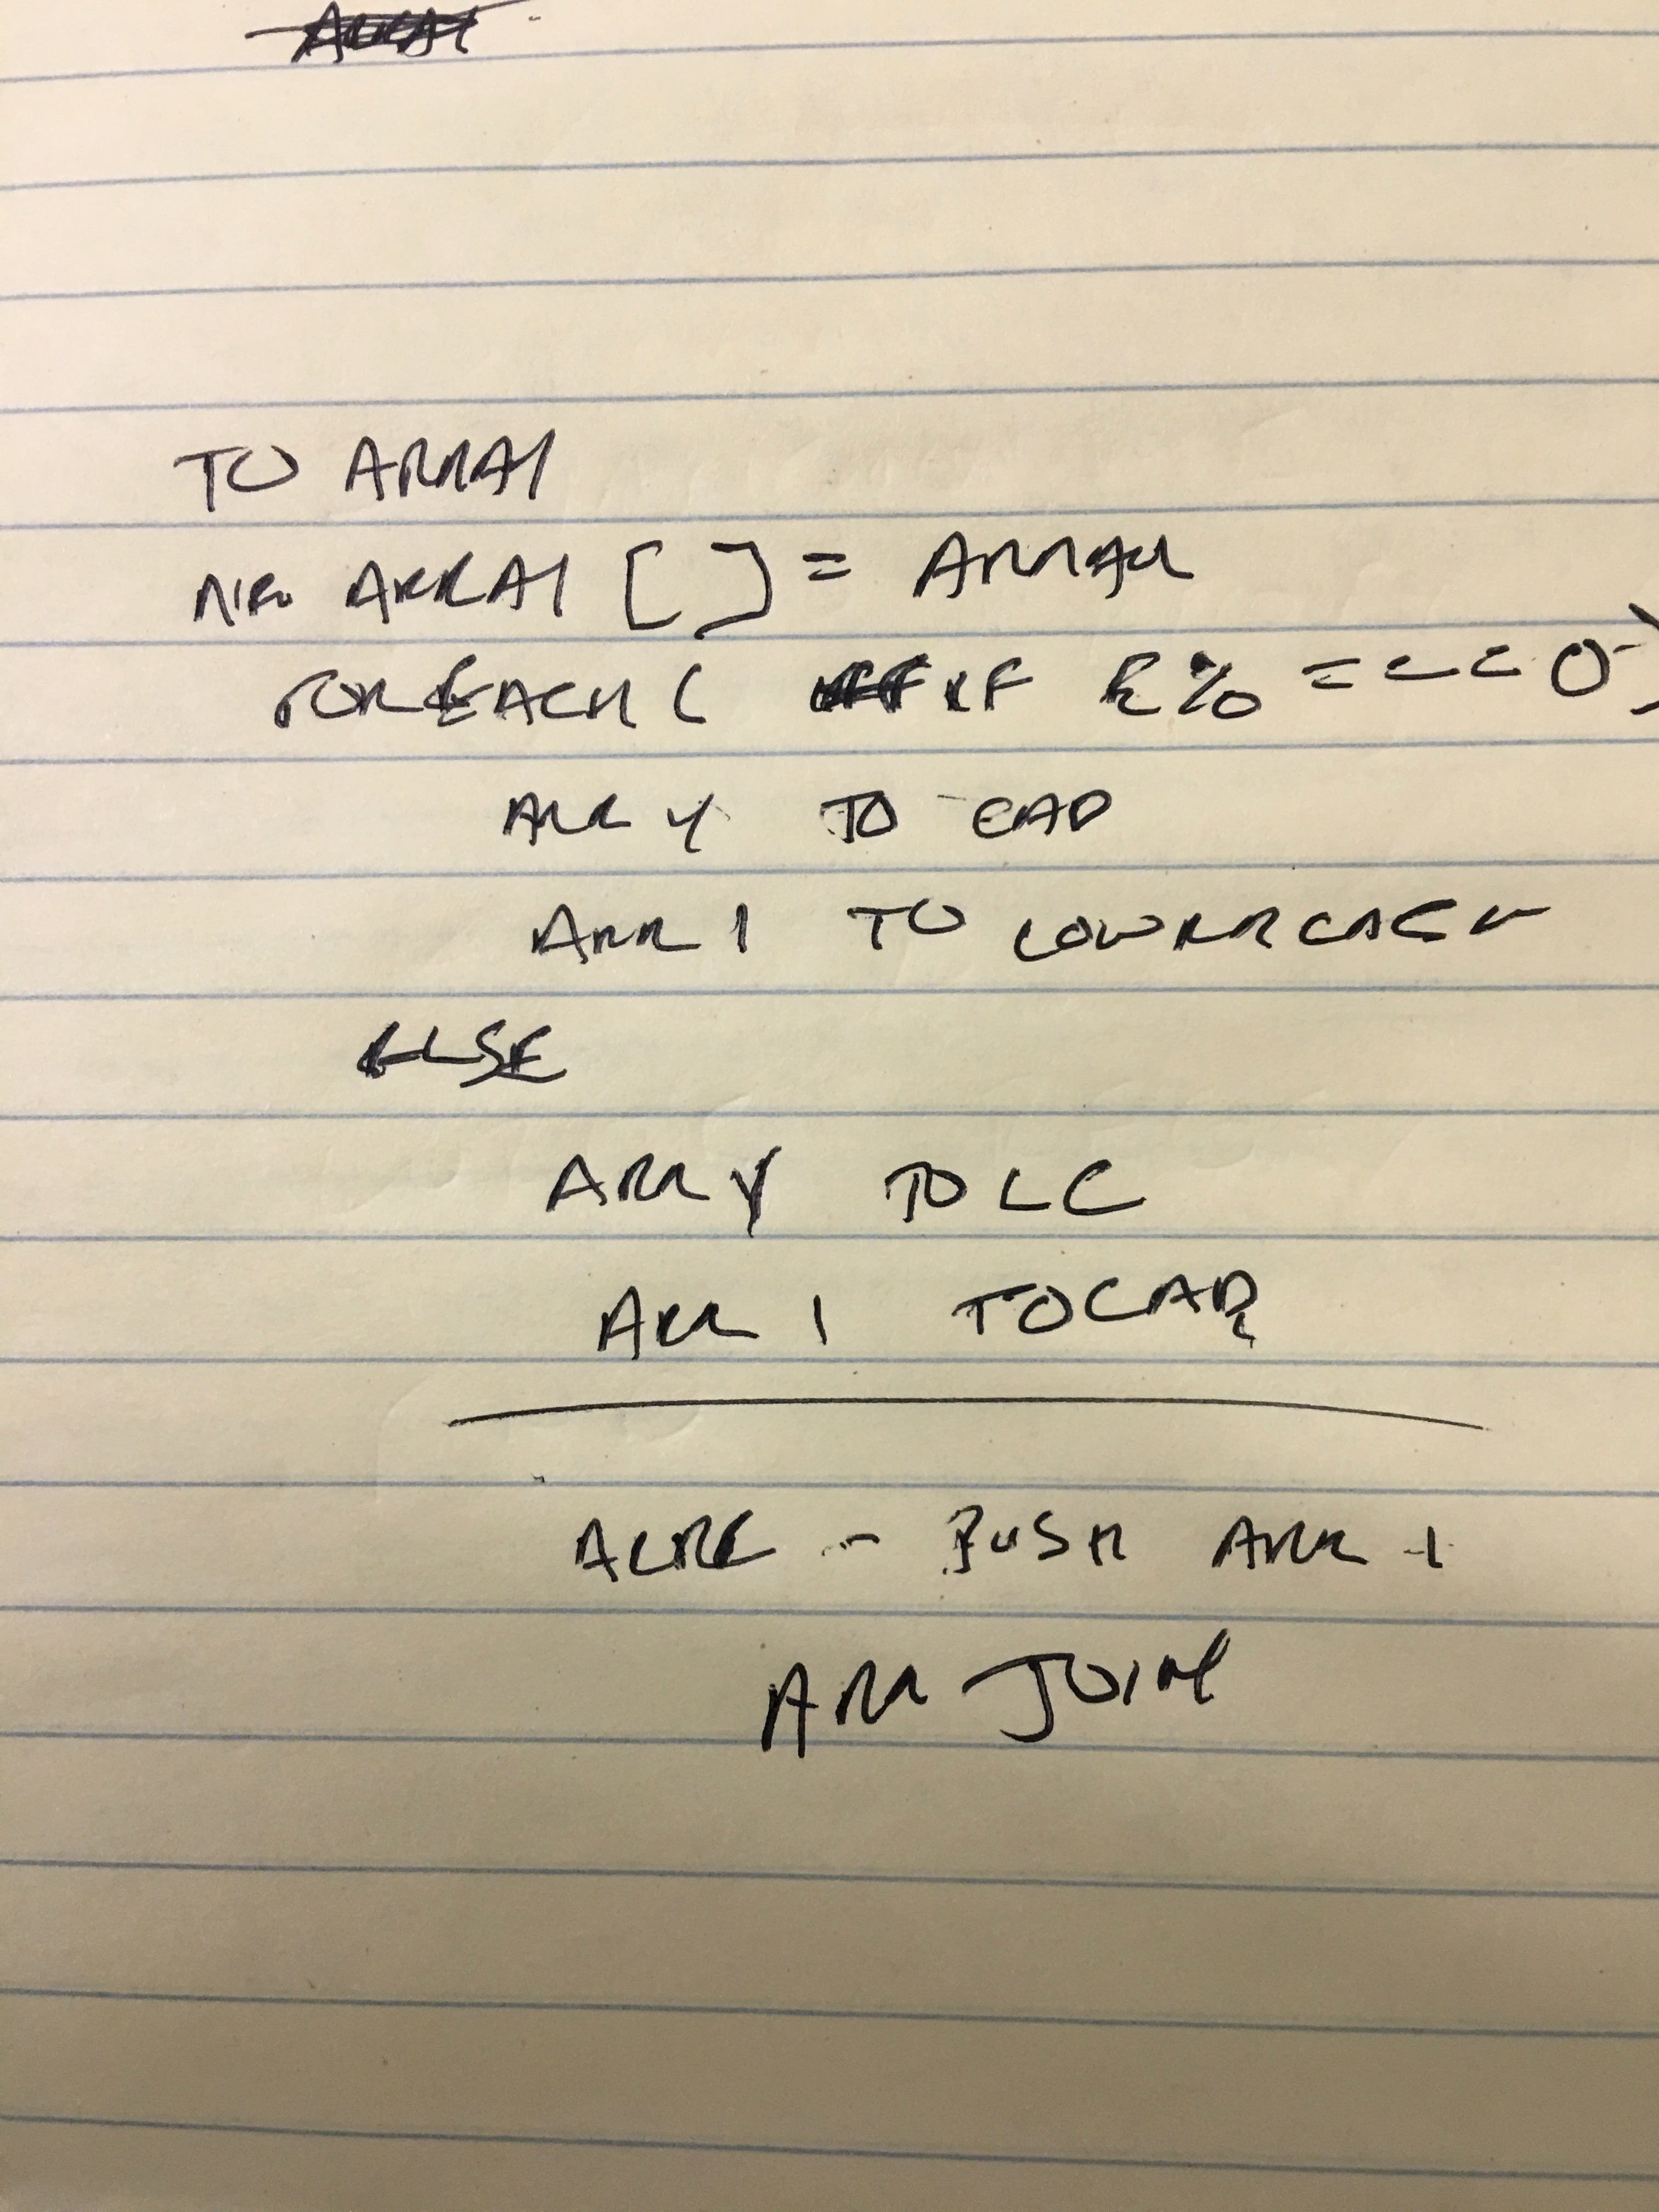 TO ARRAY
ARRAY [ ] = ARRAY
FOREACH ( IF % === 0 )
ARR Y TO CAP
ARR 1 TO LOWERCASE
ELSE
ARR Y TO LC
ARR 1 TO CAP
- PUSH ARR 1
ARR JOIN